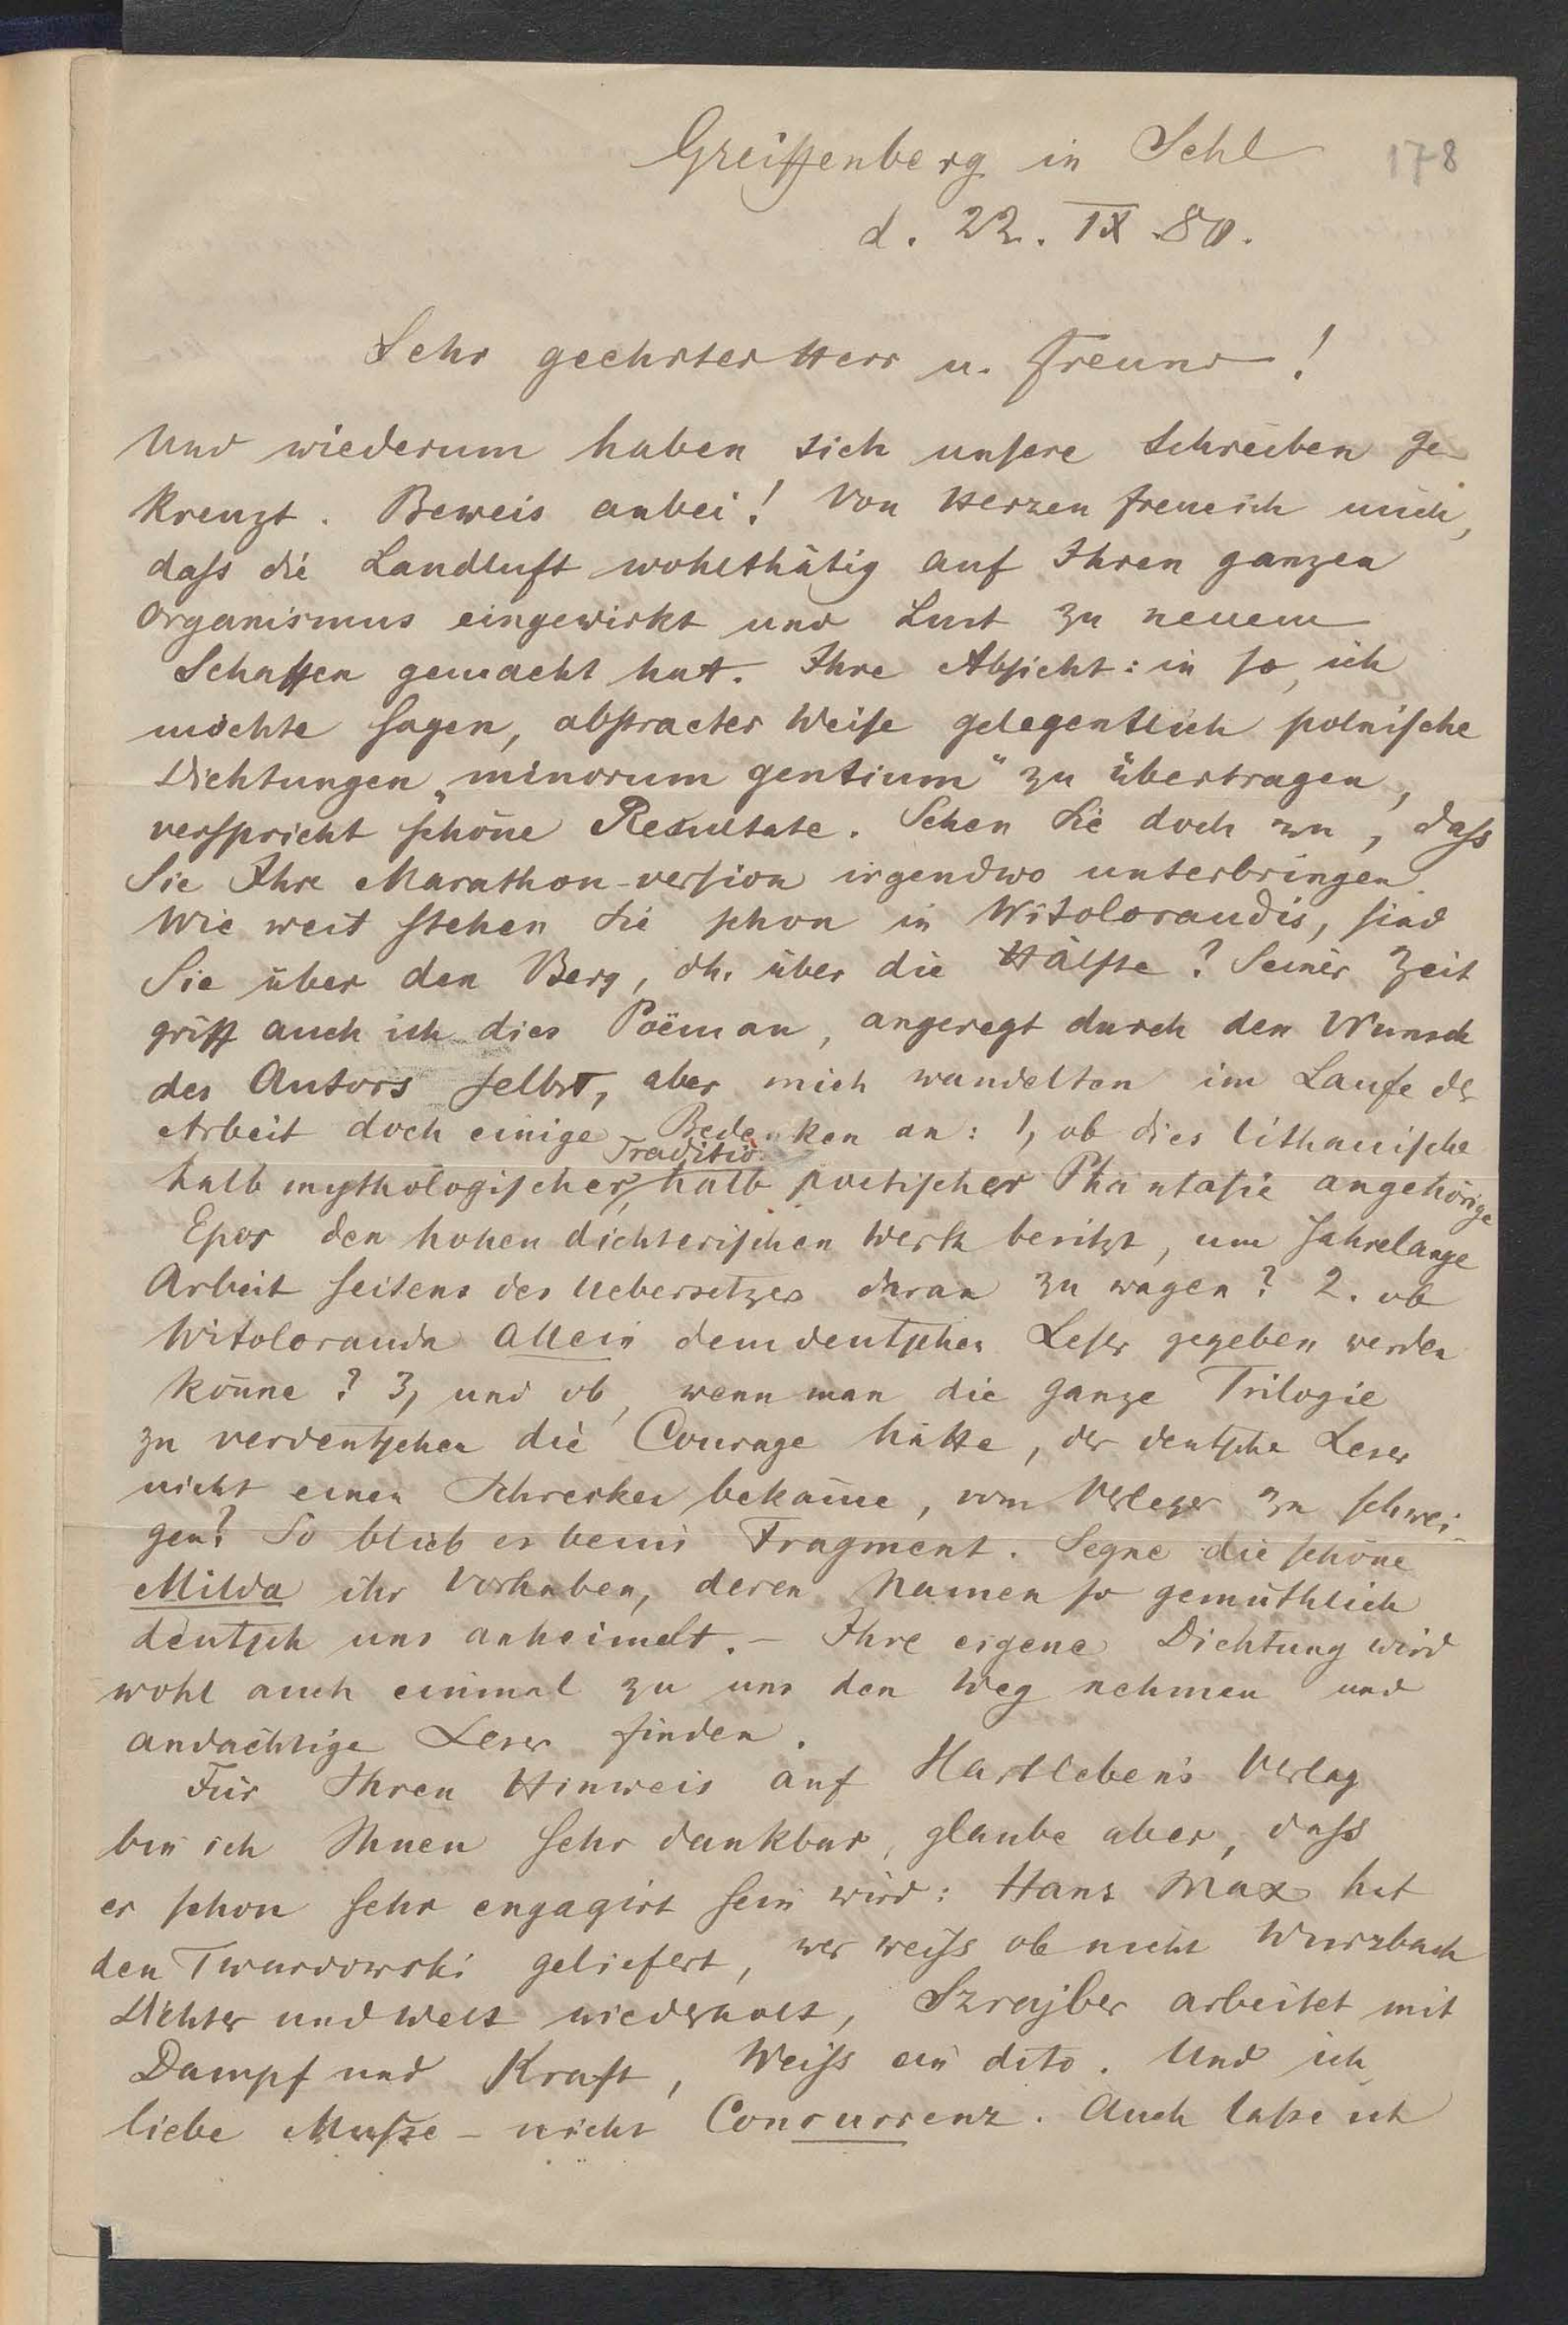 178
Greiffenberg in Schl
d. 22. IX 80.
Sehr geehrter Herr u. Freund!
Und wiederum haben sich unsere Schreiben ge-
kreuzt. Beweis anbei! Von Herzen freue ich mich,
dass die Landluft wohlthätig auf Ihren ganzen
Organismus eingewirkt und Lust zu neuem
Schaffen gemacht hat. Ihre Absicht: in so, ich
möchte sagen, abstracter Weise gelegentlich polnische
Dichtungen „minorum gentium" zu übertragen,
verspricht schöne Resultate. Sehen Sie doch zu, dass
Sie Ihre Marathon-version irgendwo unterbringen.
Wie weit stehen Sie schon in Witoloraudis, sind
Sie über den Berg, dh. über die Hälfte? Seiner Zeit
griff auch ich dies Poëm an, angeregt durch den Wunsch
des Autors selbst, aber mich wandelten im Laufe der
Arbeit doch einige Bedenken an: 1, ob dies lithauische
halb mythologischer Tradition, halb poetischer Phantasie angehörige
Epos den hohen dichterischen Werth besitzt, um Jahrelange
Arbeit seitens des Uebersetzers daran zu wagen? 2. ob
Witolorauda allein dem deutschen Leser gegeben werden
könne? 3, und ob, wenn man die ganze Trilogie
zu verdeutschen die Courage hätte, der deutsche Leser
nicht einen Schrecken bekäme, vom Verleger zu schwei-
gen? So blieb es beim Fragment. Segne die schöne
Milda ihr Vorhaben, deren Namen so gemüthlich
deutsch uns anheimelt. – Ihre eigene Dichtung wird
wohl auch einmal zu uns den Weg nehmen und
andächtige Leser finden.
Für Ihren Hinweis auf Hartleben's Verlag
bin ich Ihnen sehr dankbar, glaube aber, dass
er schon sehr engagirt sein wird: Hans Max hat
den Twardowski geliefert, wer weiss ob nicht Wurzbach
Dichter und Welt wiederholt, Szrajber arbeitet mit
Dampf und Kraft, Weiss ein dito. Und ich
liebe Musse – nicht Concurrenz. Auch lasse ich